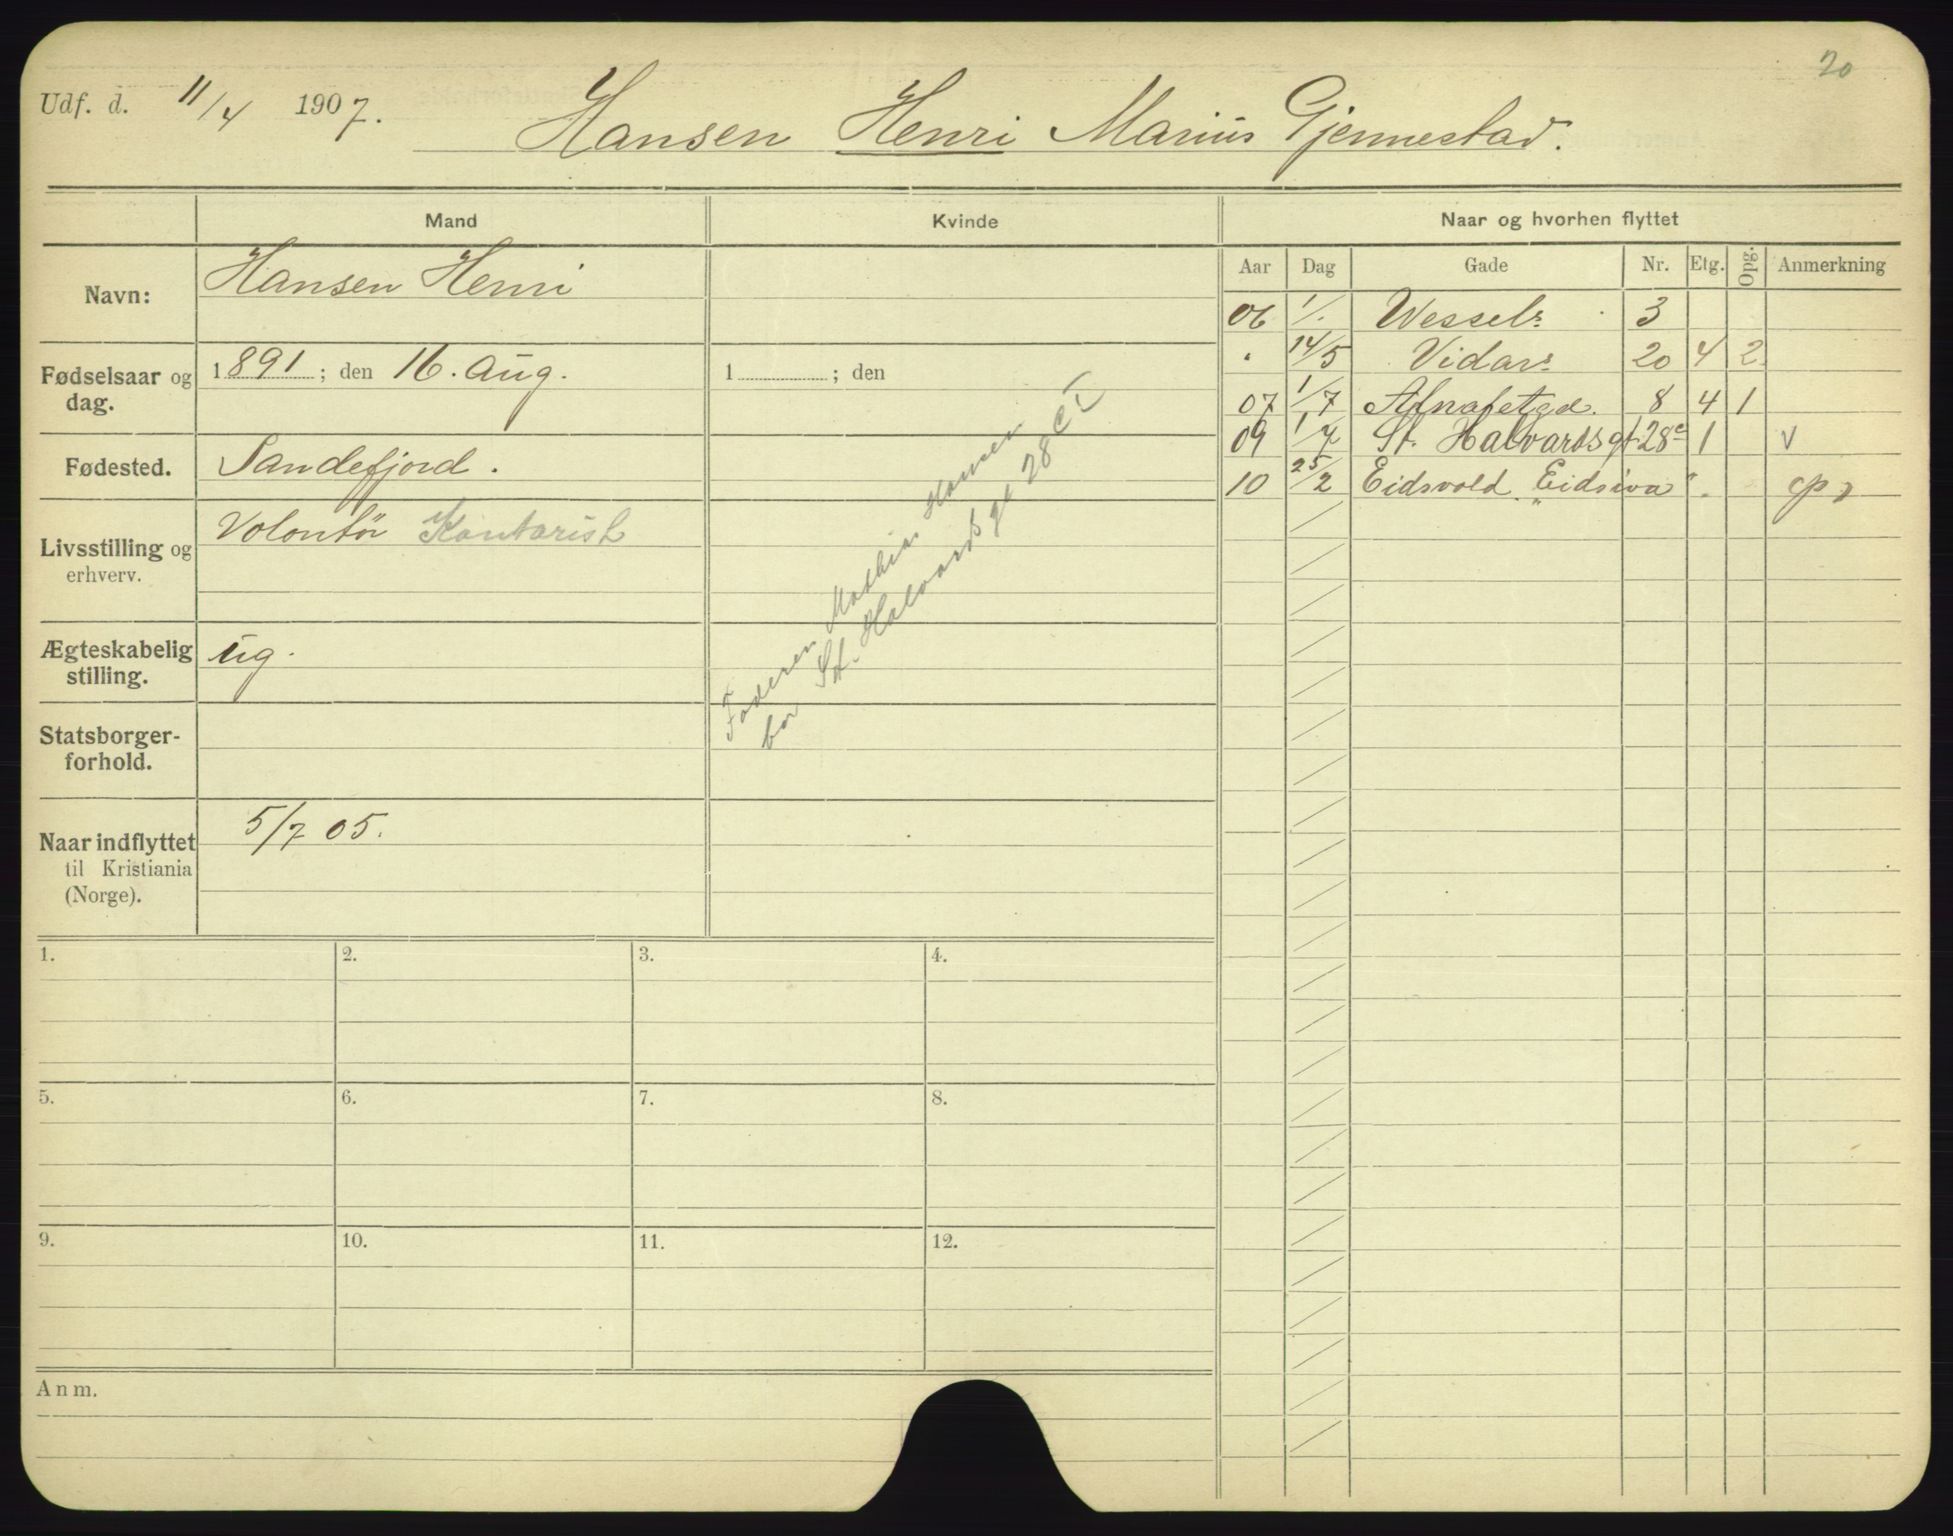 20
Udf. d. 11/4 1907. Hansen Henri Marius Gjennestad.
Mand Kvinde Naar og hvorhen flyttet
Aar Dag Gade Nr. Etg. Opg. Anmerkning
Navn: Hansen Henri
Fødselsaar og dag. 1891; den 16. Aug. 1 ; den
Fødested. Sandefjord.
Livsstilling og erhverv. Volontör Kontorist
Ægteskabelig stilling. ug.
Statsborger-
forhold.
Naar indflyttet 5/7 05.
til Kristiania
(Norge).
Faderen Mathias Hansen
bor St. Halvards gt 28 c I
06 1/. Wessels 3
" 14/5 Vidars 20 4 2
07 1/7 Alnafetgd. 8 4 1
09 1/7 St. Halvards gt 28c 1 v
10 25/2 Eidsvold "Eidsiva".
1. 2. 3. 4.
5. 6. 7. 8.
9. 10. 11. 12.
Anm.